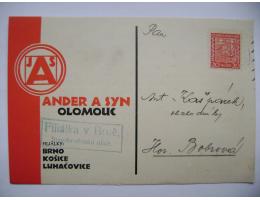 J S
A
ANDER A SYN
OLOMOUC
Filiálka v Brně,
FILIÁLKY:
BRNO
KOŠICE
LUHAČOVICE
Pan
Ant. Kašpárek,
Hor. Bobrová